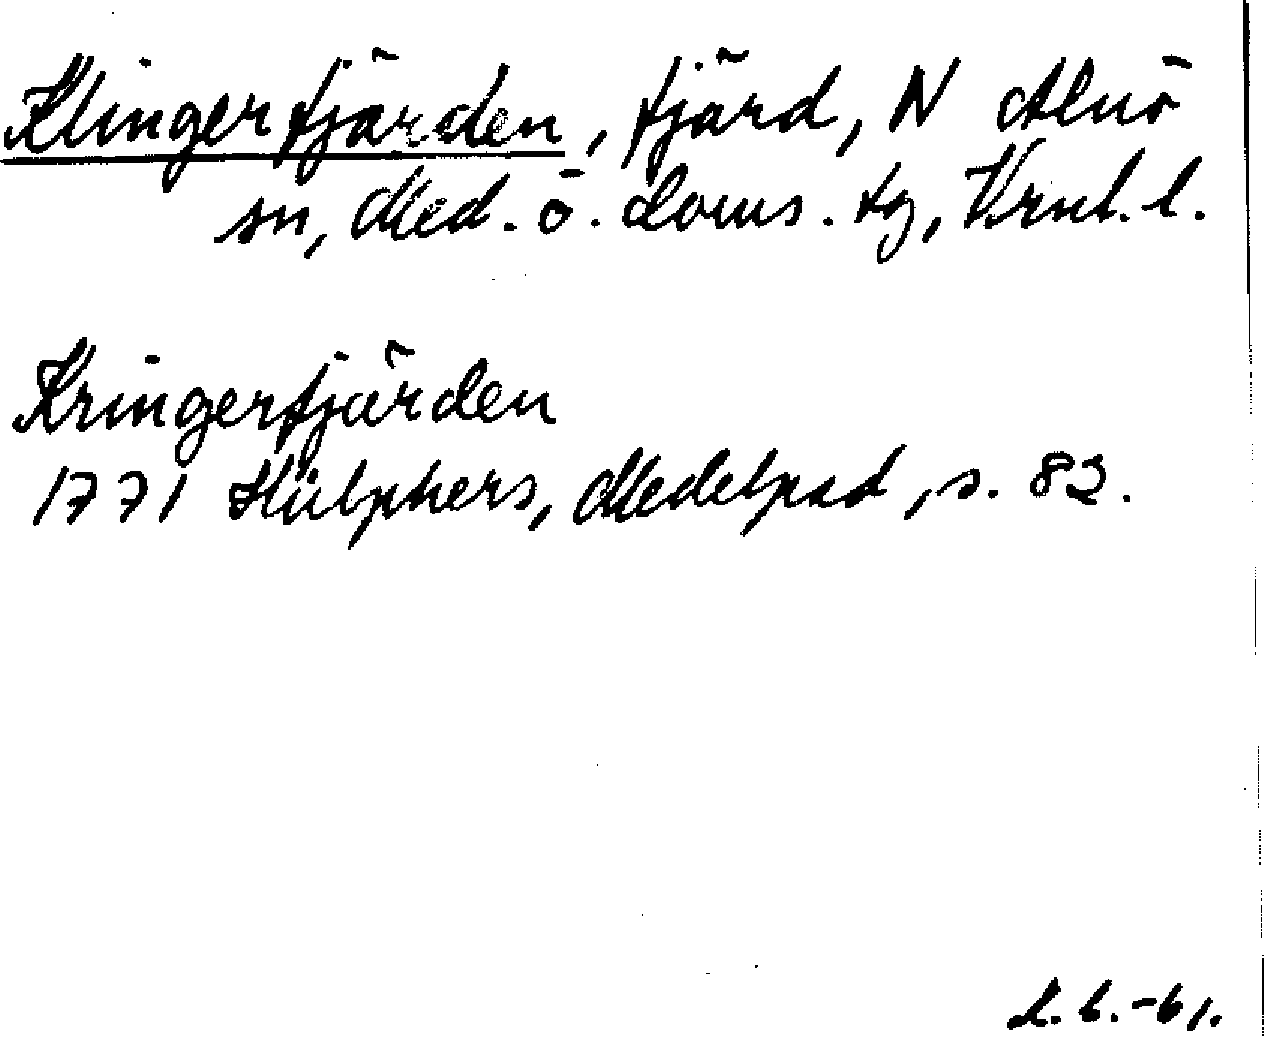 Klingerfjärden, fjärd, N Alnö
sn, Med. ö. doms. tg, Vrnl. l.
Kringerfjärden
1771 Hülphers, Medelpad, s. 82.
L. b. -61.